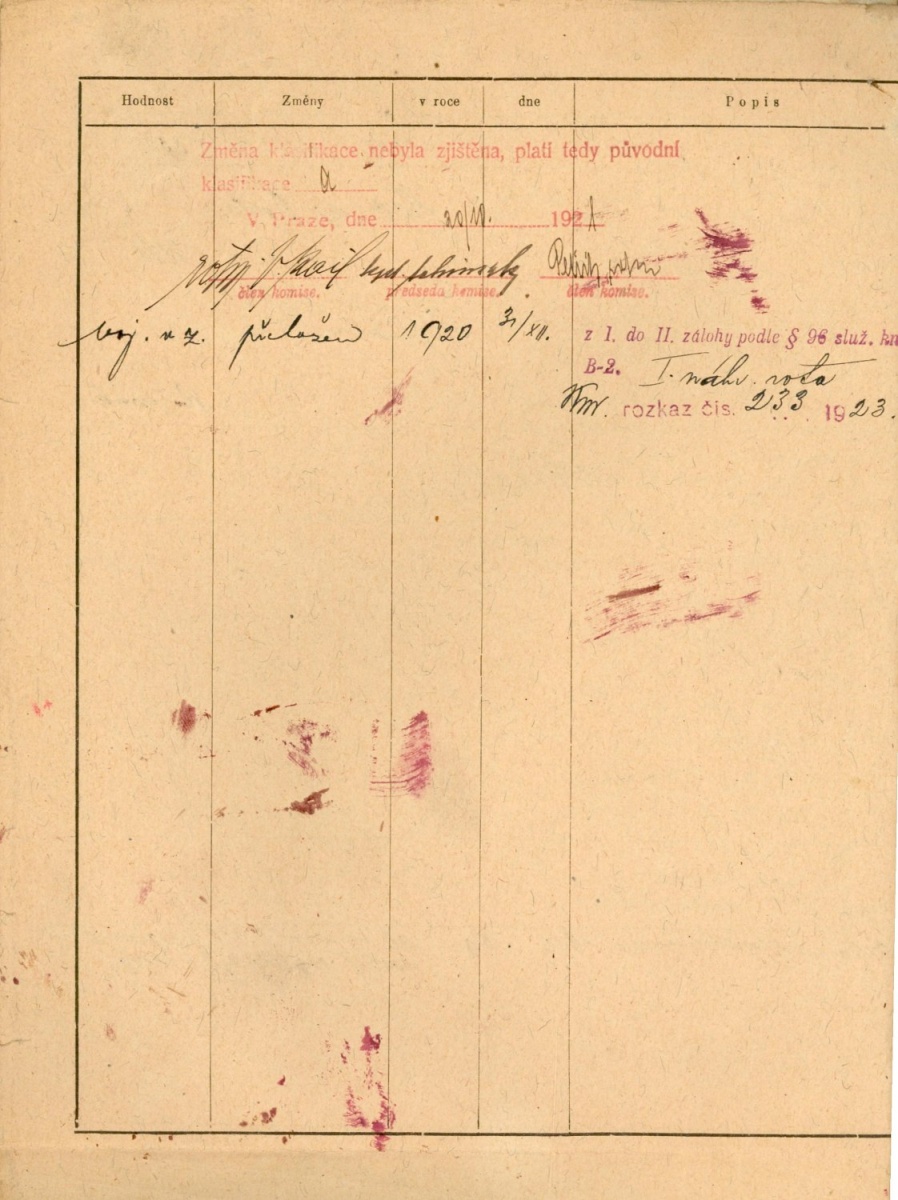 Hodnost Změny v roce dne Popis
Změna klasifikace nebyla zjištěna, platí tedy původní
klasifikace a
V Praze, dne 20/IV. 1921
člen komise. předseda komise. člen komise.
voj. v z. přeložen 1920 31/XII. z I. do II. zálohy podle § 96 služ. kn
B-2. I. náhr. rota
Kmr. rozkaz čís. 233 1923.